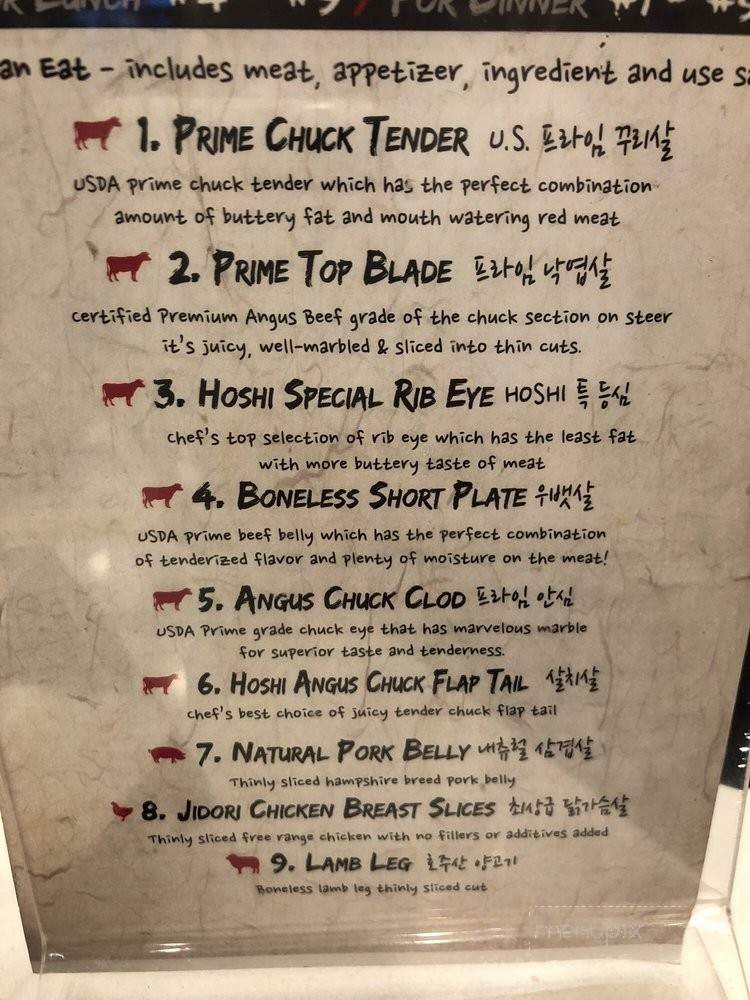 LUNCH #4 #9 / FOR DINNER #1 -
an Eat - includes meat, appetizer, ingredient and use
1. PRIME CHUCK TENDER U.S. 프라임 꾸리살
USDA prime chuck tender which has the perfect combination
amount of buttery fat and mouth watering red meat
2. PRIME TOP BLADE 프라임 낙엽살
certified Premium Angus Beef grade of the chuck section on steer
it's juicy, well-marbled & sliced into thin cuts.
3. HOSHI SPECIAL RIB EYE HOSHI 특 등심
chef's top selection of rib eye which has the least fat
with more buttery taste of meat
4. BONELESS SHORT PLATE 우뱃살
USDA prime beef belly which has the perfect combination
of tenderized flavor and plenty of moisture on the meat!
5. ANGUS CHUCK CLOD 프라임 안심
USDA Prime grade chuck eye that has marvelous marble
for superior taste and tenderness.
6. HOSHI ANGUS CHUCK FLAP TAIL 살치살
chef's best choice of juicy tender chuck flap tail
7. NATURAL PORK BELLY 내츄럴 삼겹살
Thinly sliced hampshire breed pork belly
8. JIDORI CHICKEN BREAST SLICES 최상급 닭가슴살
Thinly sliced free range chicken with no fillers or additives added
9. LAMB LEG 호주산 양고기
Boneless lamb leg thinly sliced cut
menupix